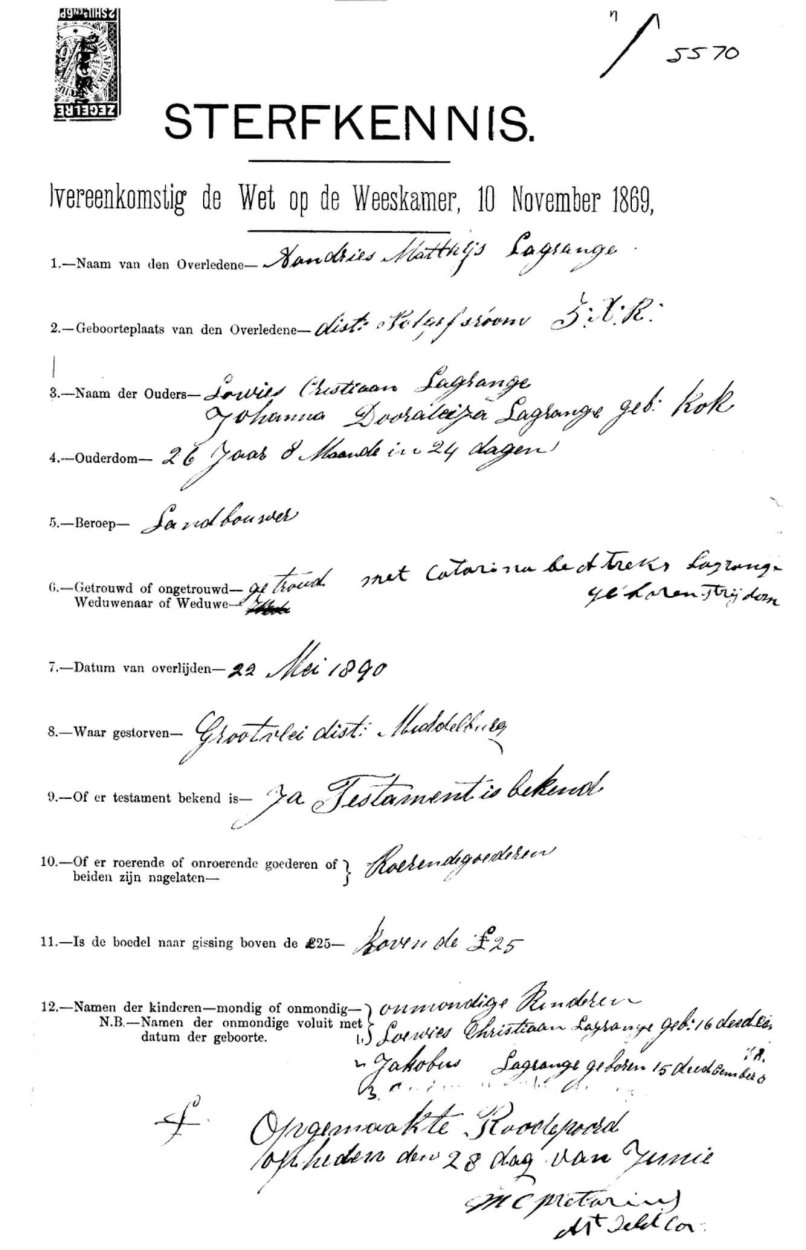 ZEGELRE
5570
STERFKENNIS.
vereenkomstig de Wet op de Weeskamer, 10 November 1869,
1.—Naam van den Overledene— Andries Matthijs Lagrange
2.—Geboorteplaats van den Overledene— dist: Z:A:R:
3.—Naam der Ouders— Lowies Cristiaan Lagrange
Johanna Lagrange geb: Kok
4.—Ouderdom— 26 Jaar 8 Maande in 24 dagen
5.—Beroep— Landbouwer
6.—Getrouwd of ongetrouwd— getroud met Catarina Lagrange
Weduwenaar of Weduwe— geboren Strijdom
7.—Datum van overlijden— 22 Mei 1890
8.—Waar gestorven— Grootvlei dist: Middelburg
9.—Of er testament bekend is— Ja Testament is bekend
10.—Of er roerende of onroerende goederen of } Roerendegoederen
beiden zijn nagelaten—
11.—Is de boedel naar gissing boven de £25— Boven de £25
12.—Namen der kinderen—mondig of onmondig— } onmondige Kinderen
N.B.—Namen der onmondige voluit met } Loewies Christiaan Lagrange geb: 16
datum der geboorte. Jakobus Lagrange geboren 15
3.
Opgemaakte Roodepoord
op heden den 28 dag van Junie
M C Pretorius